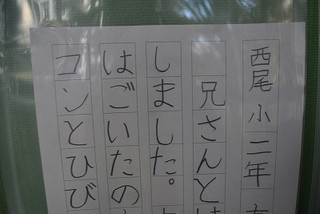 西尾小二年
兄さんと
しました。
はごいたの
コンとひび